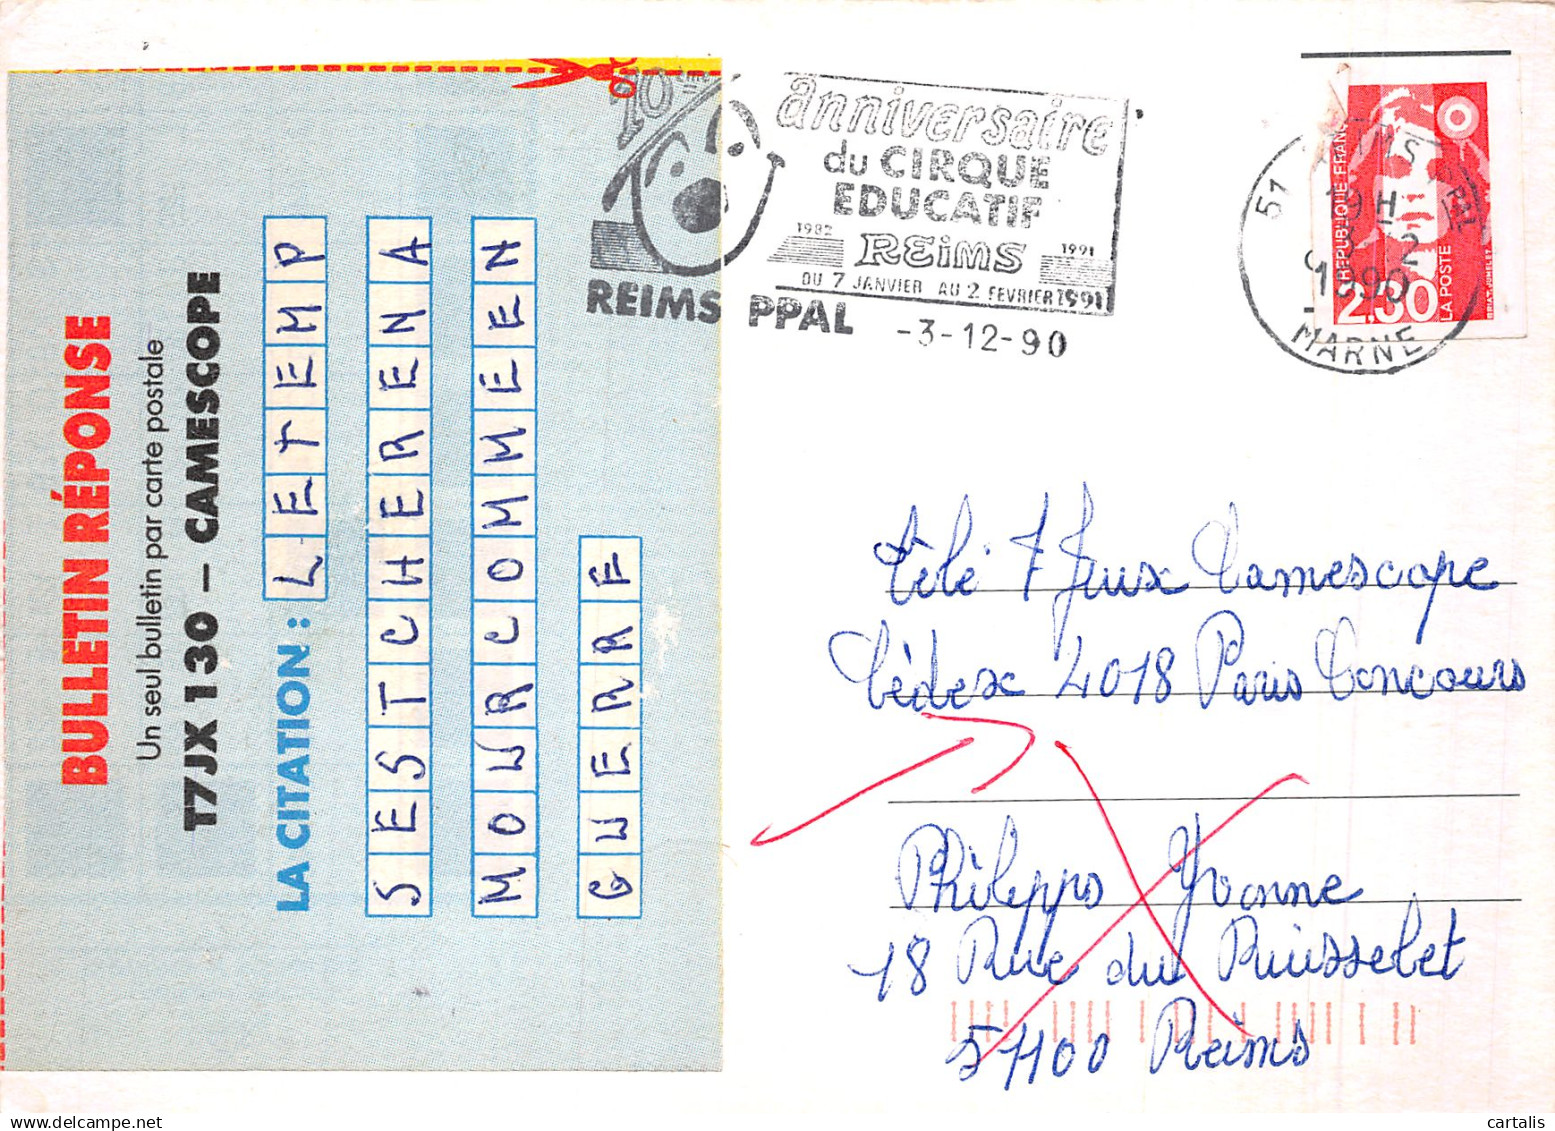 BULLETIN RÉPONSE
Un seul bulletin par carte postale
T7JX 130 – CAMESCOPE
LA CITATION : LETEMP
SESTCHERENA
MOURCOMMEEN
GUERRE
10ème anniversaire
du CIRQUE
EDUCATIF
1982 REIMS 1991
DU 7 JANVIER AU 2 FEVRIER 1991
REIMS PPAL -3-12-90
51 REIMS PPAL
19H
1990
MARNE
REPUBLIQUE FRANC
2,30
LA POSTE
BRIAT-JUMELET
Télé 7 Jeux Camescope
Cédex 4018 Paris Concours
Philipps Yvonne
18 Rue du Ruisselet
51100 Reims
cartalis
delcampe.net